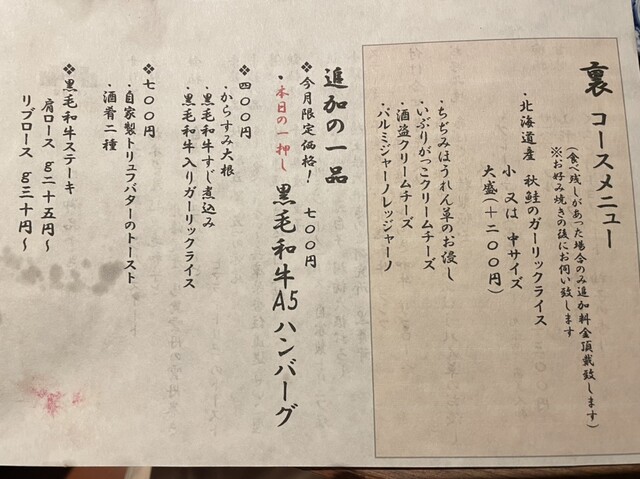 裏 コースメニュー
(食べ残しがあった場合のみ追加料金頂戴致します)
※お好み焼きの後にお伺い致します
・北海道産 秋鮭のガーリックライス
小 又は 中サイズ
大盛(+二〇〇円)
・ちぢみほうれん草のお浸し
・いぶりがっこクリームチーズ
・酒盗クリームチーズ
・パルミジャーノレッジャーノ
追加の一品
❖今月限定価格! 七〇〇円
・本日の一押し 黒毛和牛A5ハンバーグ
❖四〇〇円
・からすみ大根
・黒毛和牛すじ煮込み
・黒毛和牛入りガーリックライス
❖七〇〇円
・自家製トリュフバターのトースト
・酒肴二種
❖黒毛和牛ステーキ
肩ロース g二十五円〜
リブロース g三十円〜